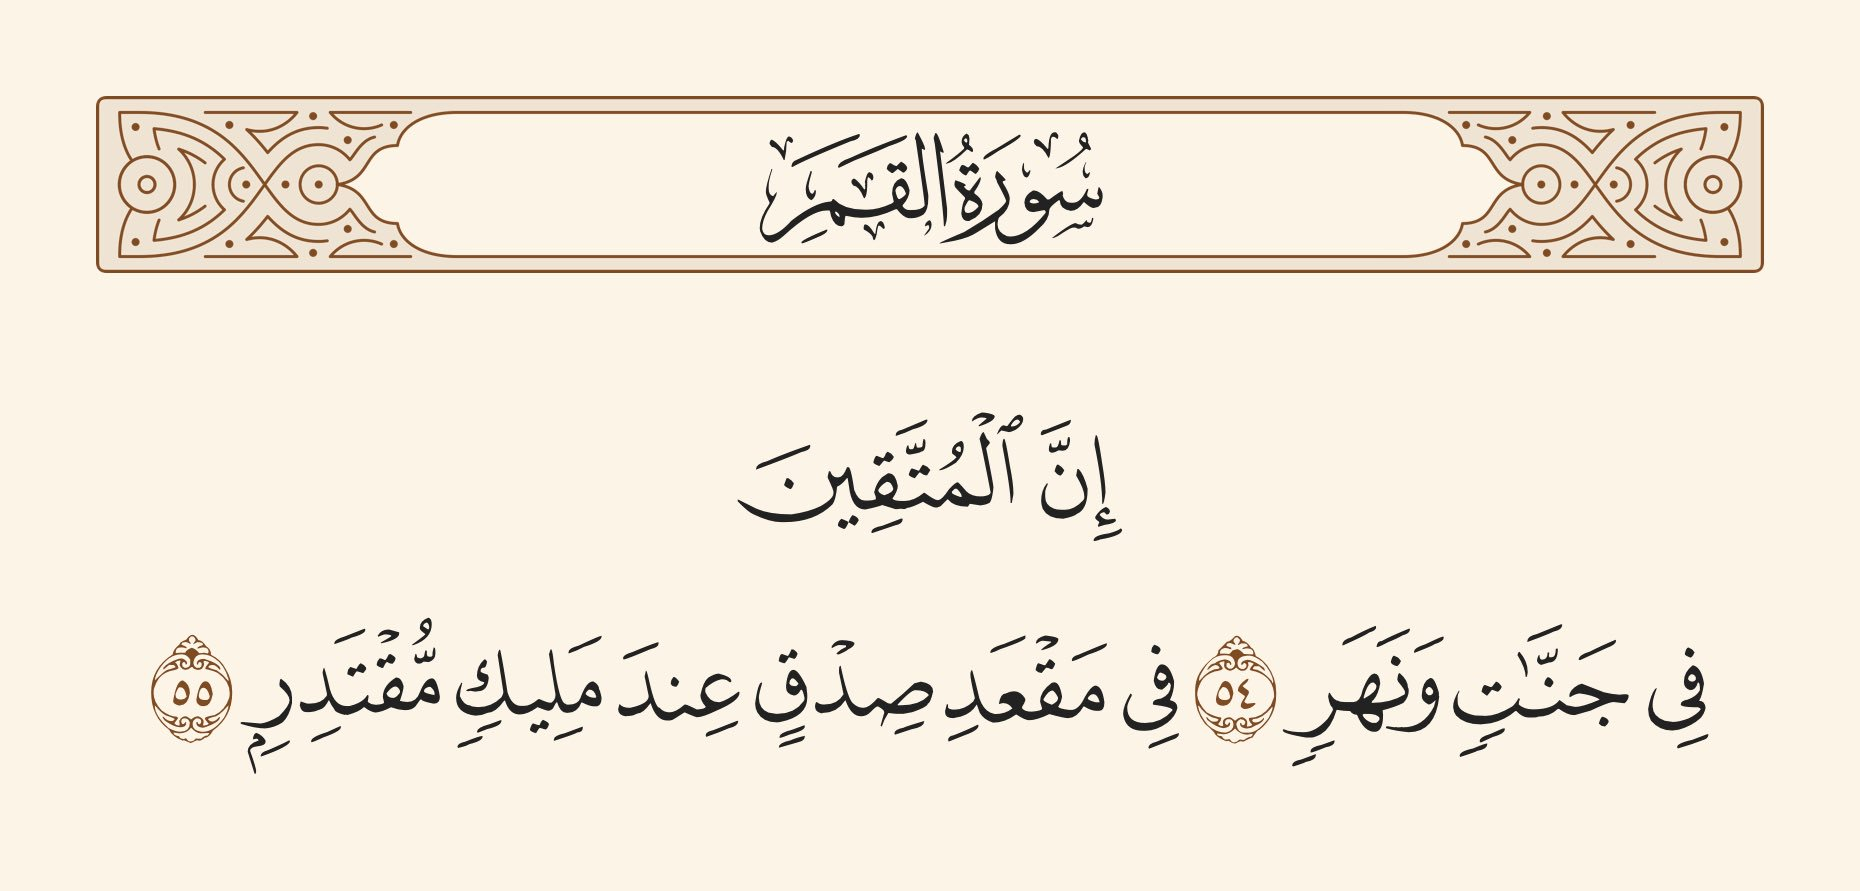 سُورَةُ القَمَرِ
إِنَّ ٱلۡمُتَّقِينَ
فِي جَنَّٰتٖ وَنَهَرٖ ٥٤ فِي مَقۡعَدِ صِدۡقٍ عِندَ مَلِيكٖ مُّقۡتَدِرِۭ ٥٥